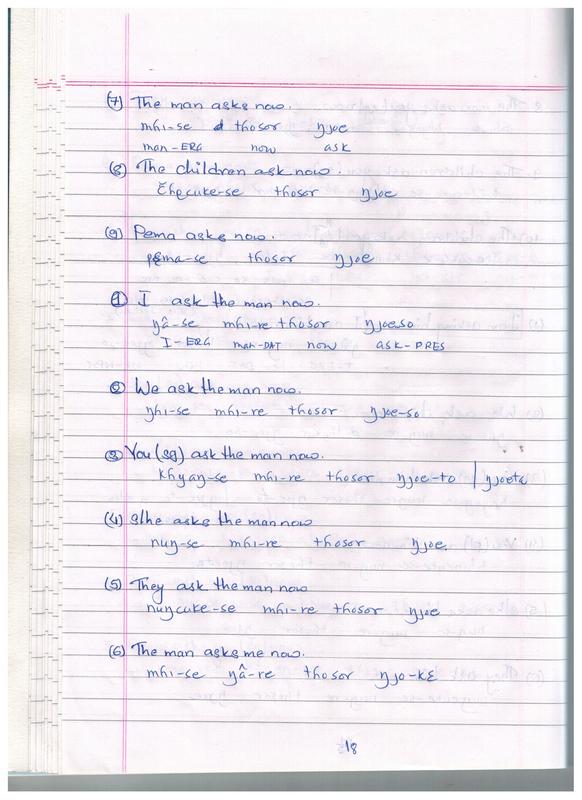 (7) The man asks now.
mhi-se thosor ŋjoe
man-ERG now ask
(8) The children ask now.
thosor ŋjoe
(9) Pema asks now.
pɛma-se thosor ŋjoe
(1) I ask the man now.
ŋâ-se mhi-re thosor ŋjoeso
I-ERG man-DAT now ask-PRES
(2) We ask the man now.
ŋhi-se mhi-re thosor ŋjoe-so
(3) You (sg) ask the man now.
khyaŋ-se mhi-re thosor ŋjoe-to |
(4) S/he asks the man now
nuŋ-se mhi-re thosor ŋjoe.
(5) They ask the man now
nuŋcuke-se mhi-re thosor ŋjoe
(6) The man asks me now.
mhi-se ŋâ-re thosor ŋjo-kɛ
18